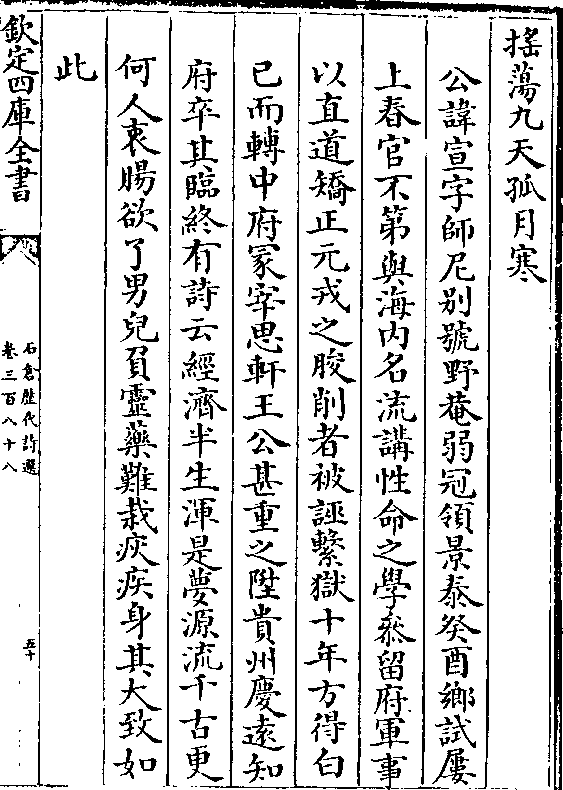 搖蕩九天孤月寒
公諱宣字師尼别號野菴弱冠領景泰癸酉鄉試屢
上春官不第與海内名流講性命之學叅留府軍事
以直道矯正元戎之朘削者被誣繫獄十年方得白
已而轉中府冢宰思軒王公甚重之陞貴州慶遠知
府卒其臨終有詩云經濟半生渾是夢源流千古更
何人衷腸欲了男兒負靈藥難栽疢疾身其大致如
此
欽定四庫全書
石倉歴代詩選
卷三百八十八
五十